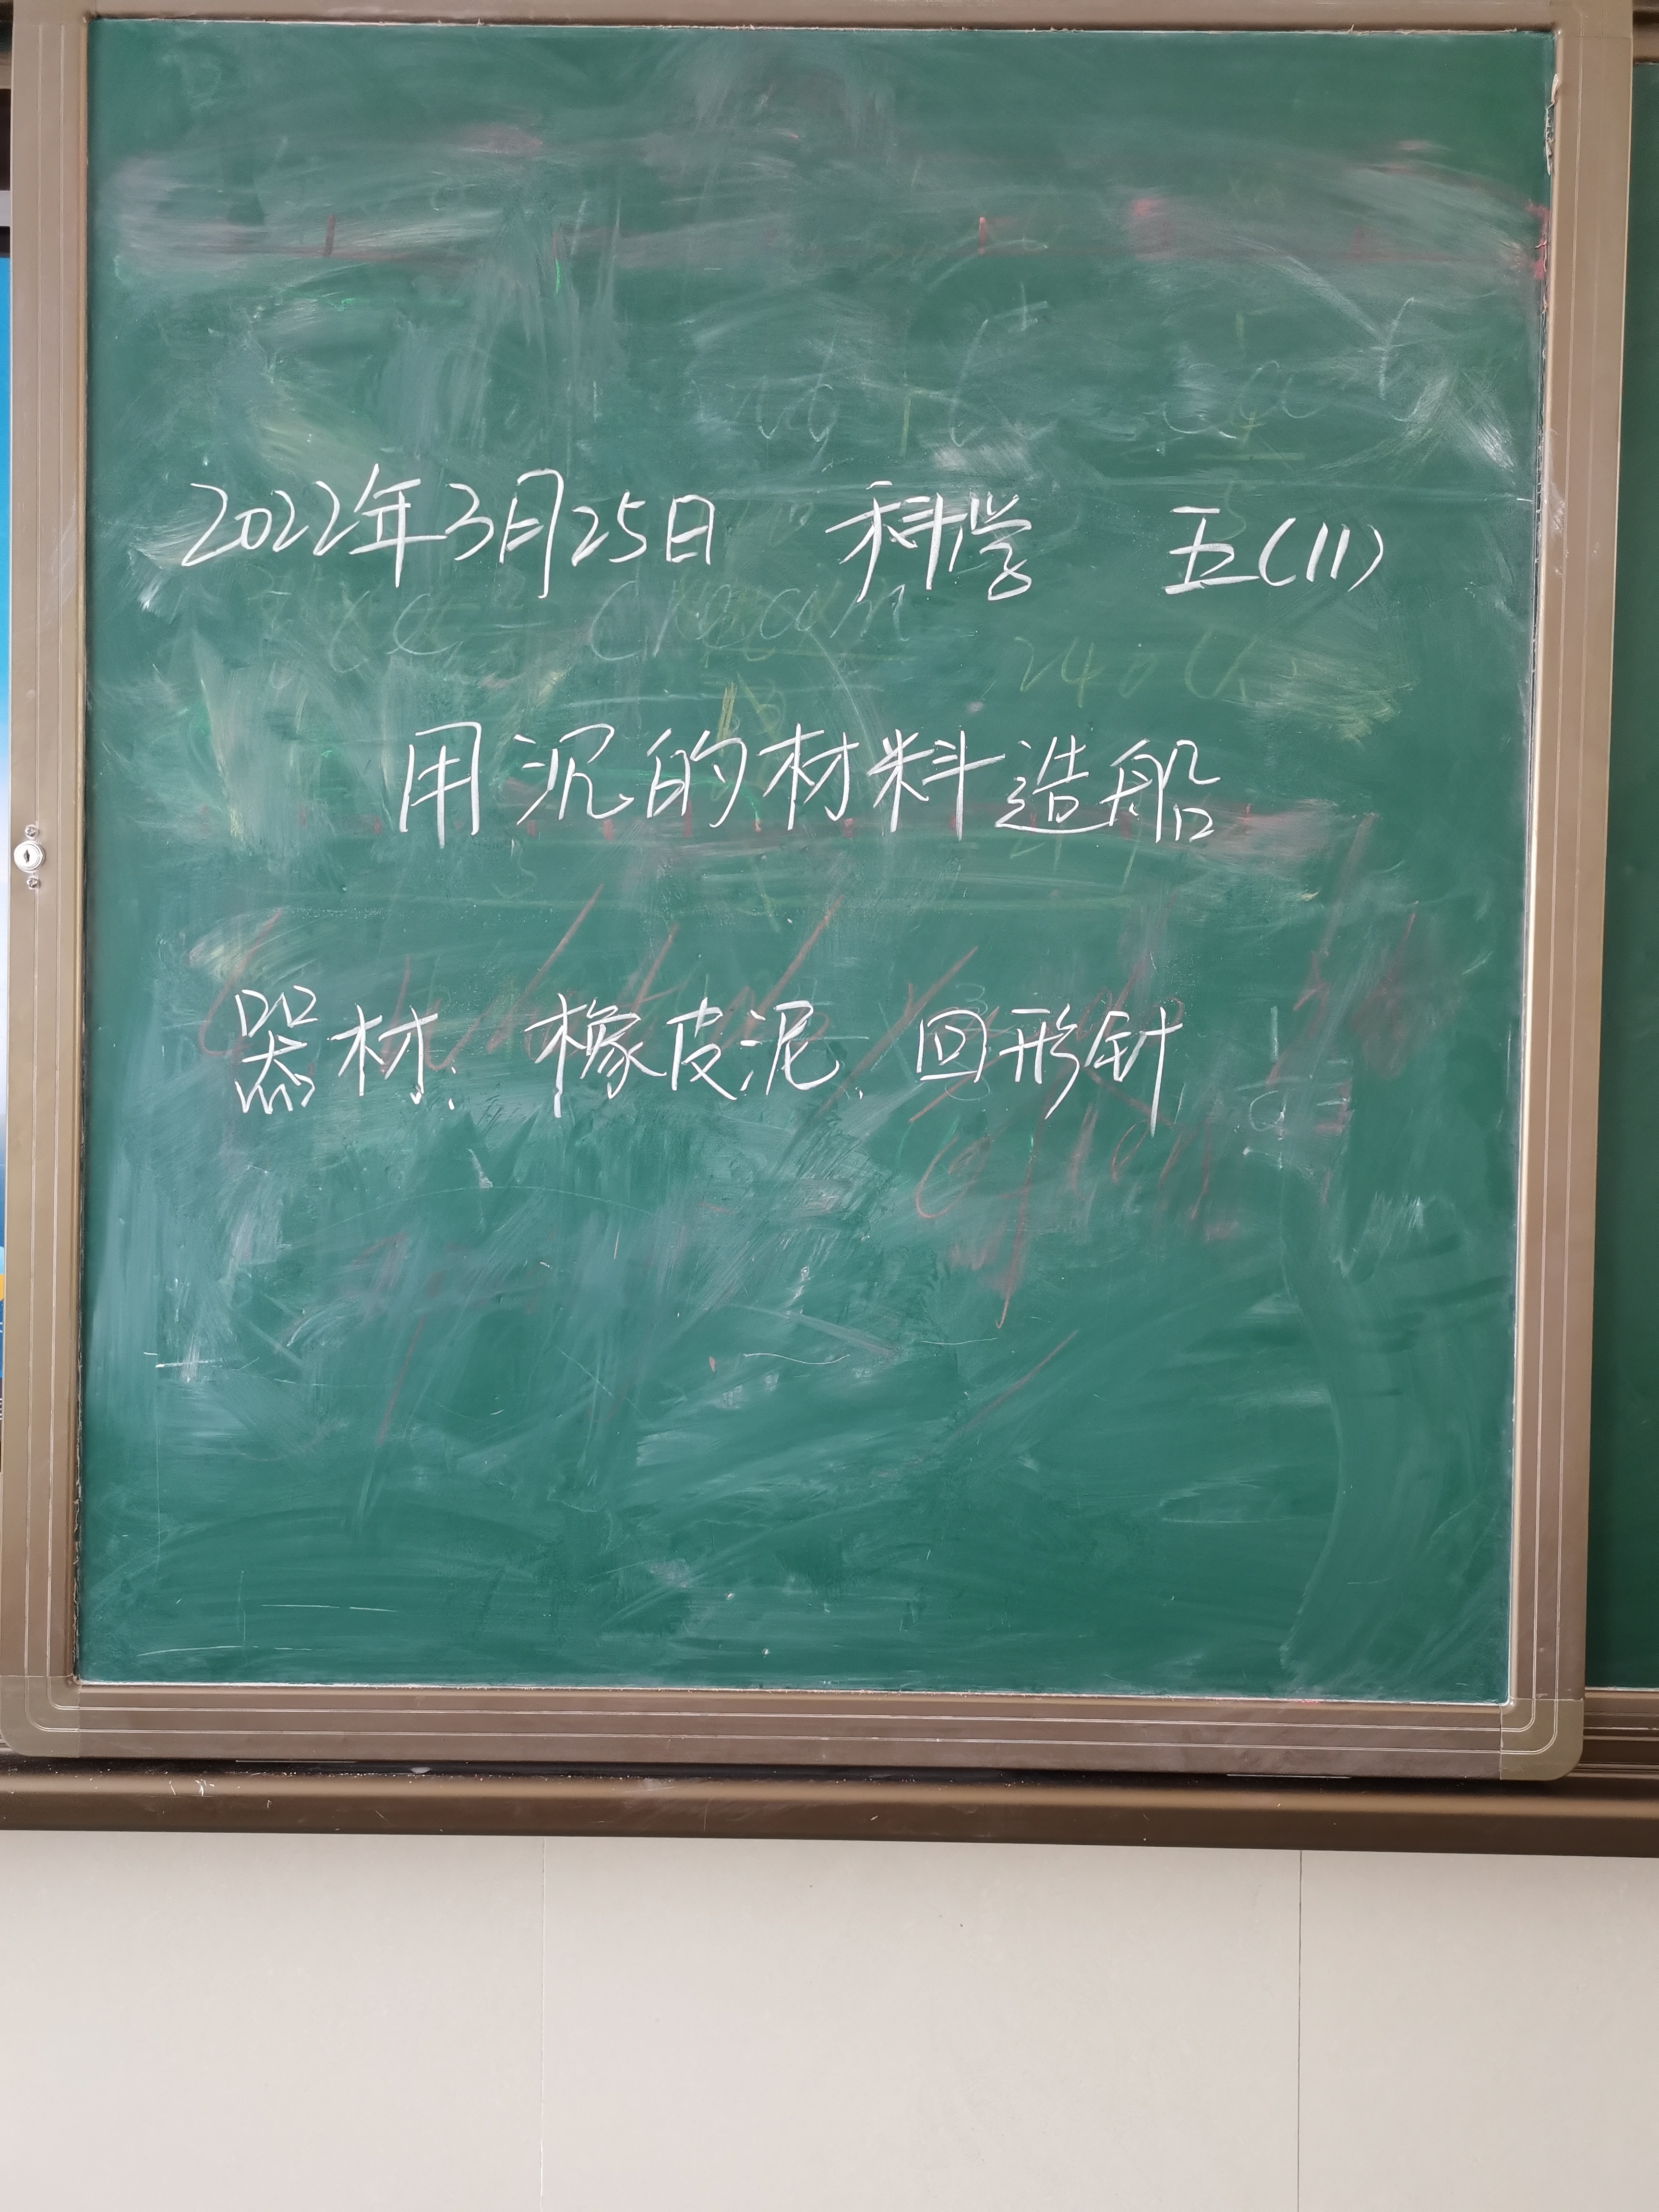 2022年3月25日 科学 五(11)
用沉的材料造船
器材: 橡皮泥、回形针